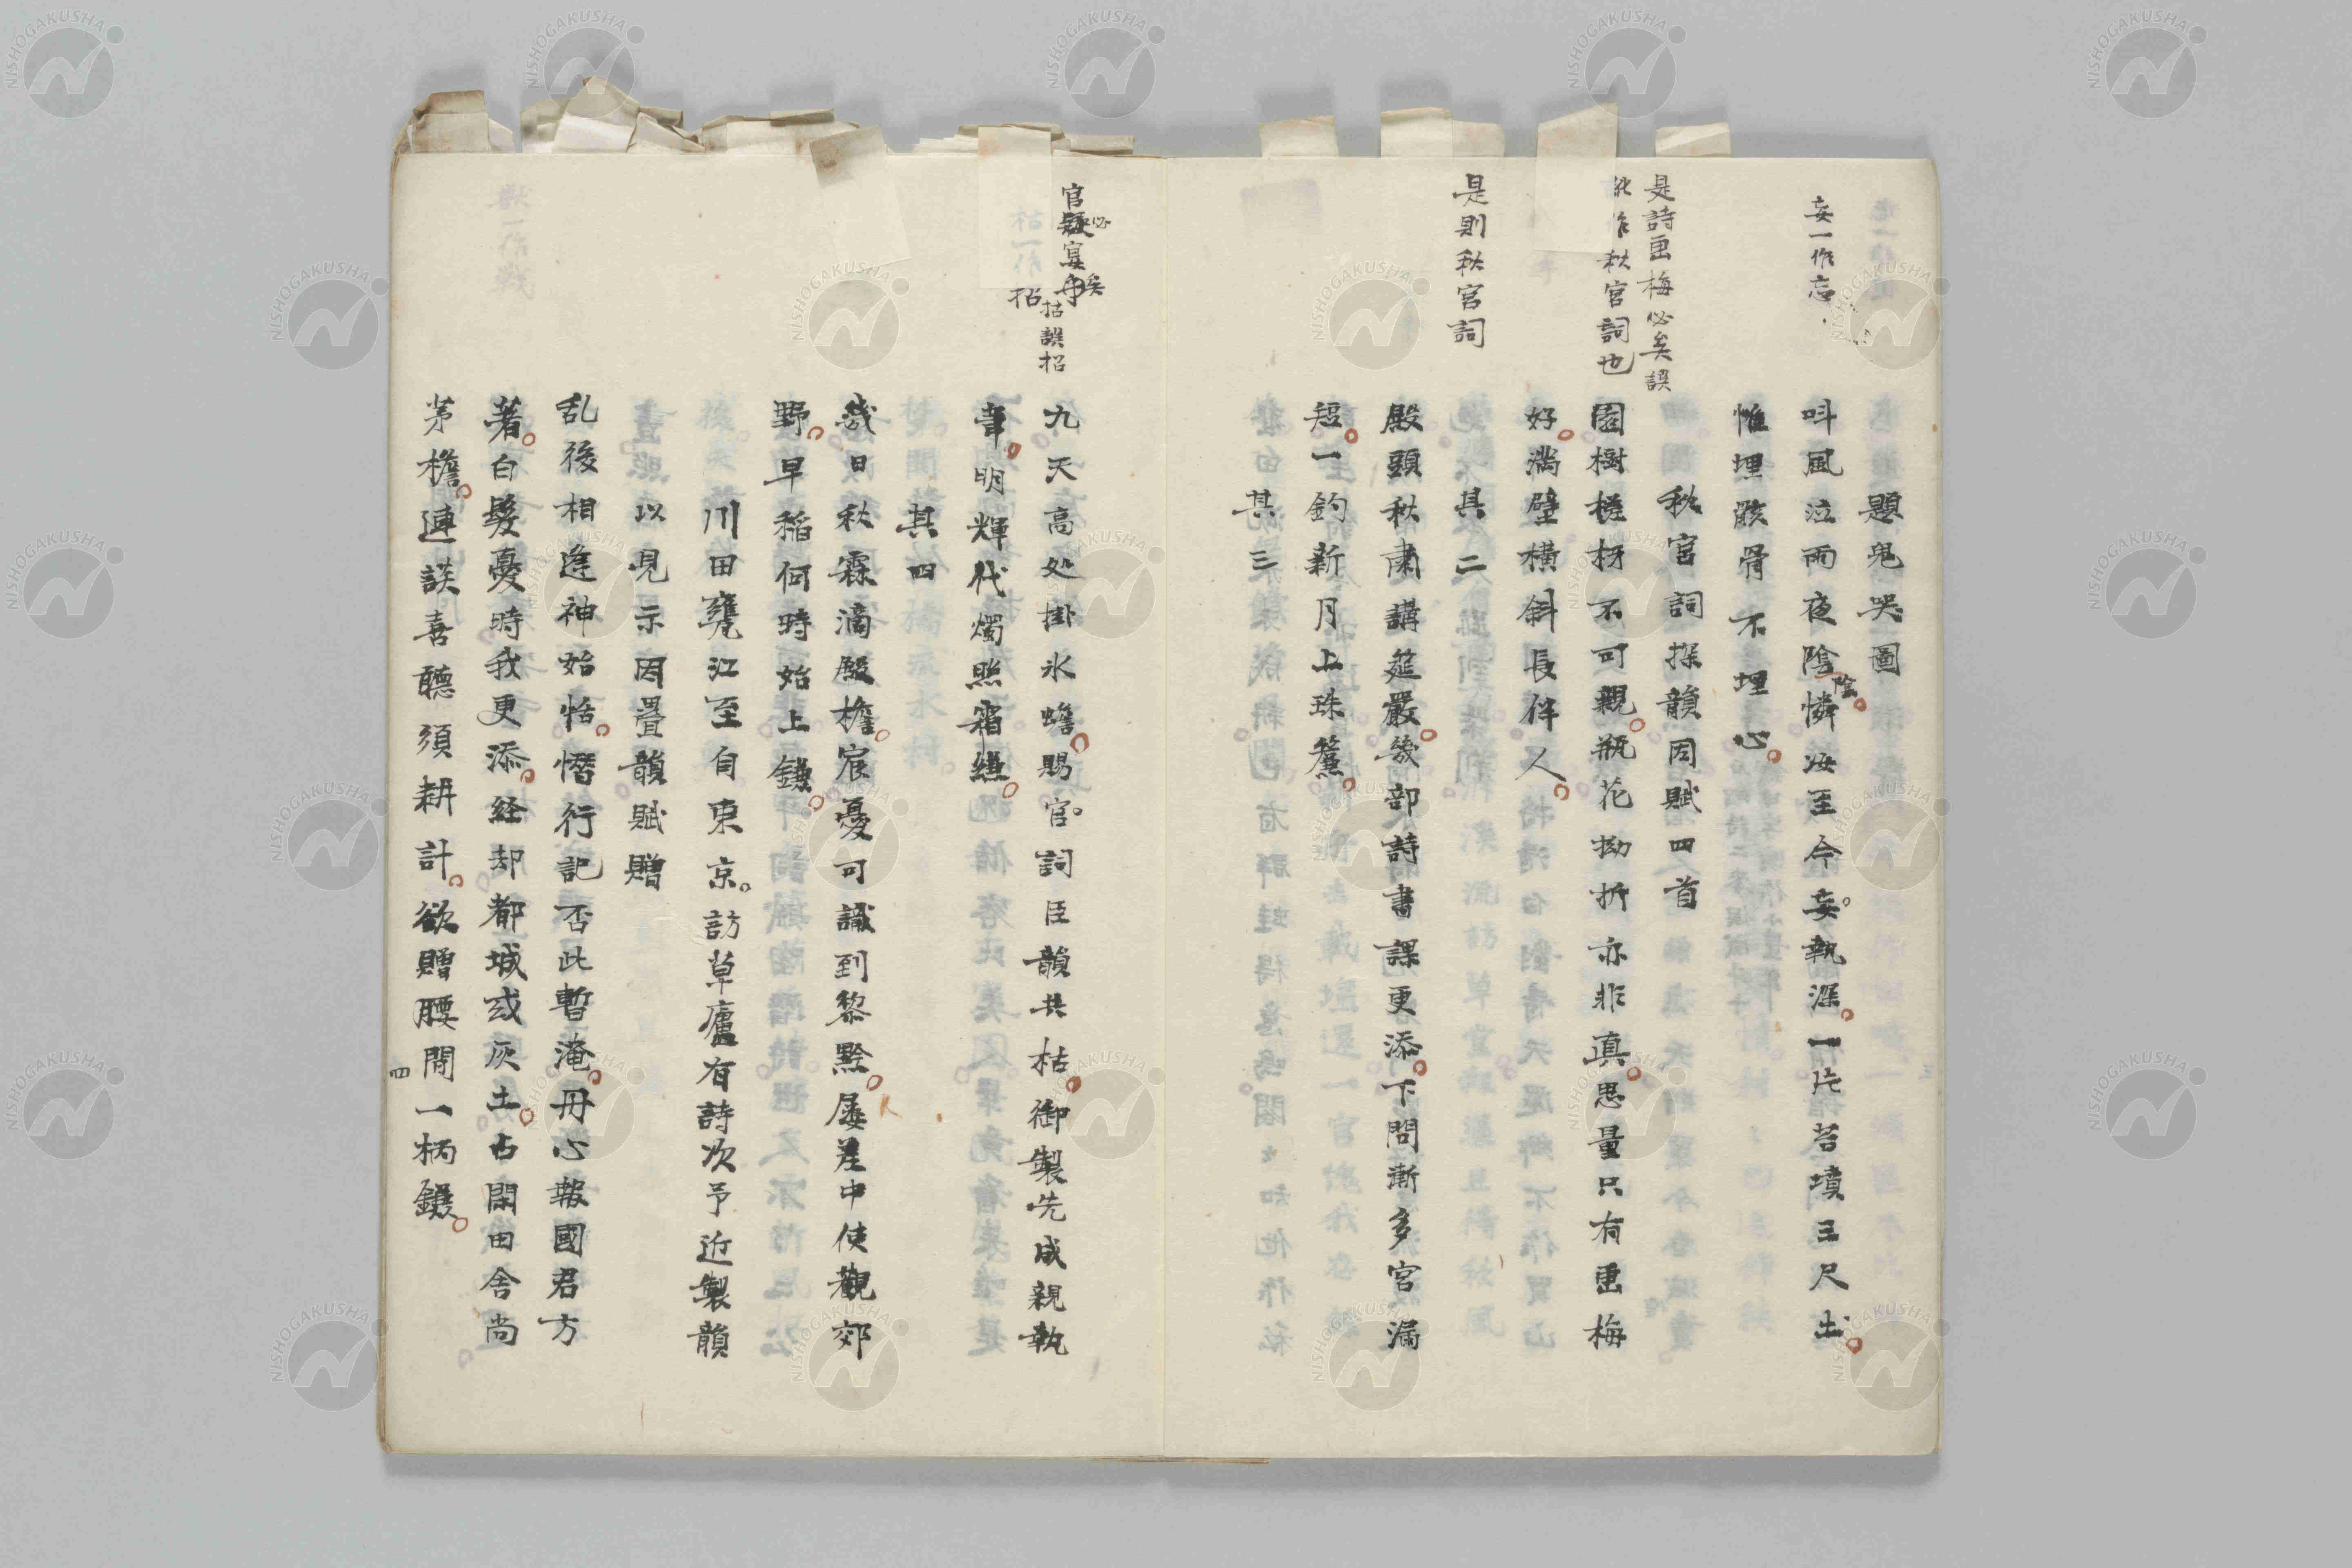 妄一作忘
題鬼哭圖
呌風泣雨夜陰憐汝至今妄執深一片苔墳三尺土
陰
惟埋骸骨不埋心
是詩畫梅必矣誤
作秋宮詞也
秋宮詞探韻因賦四首
園樹槎枒不可親瓶花拗折亦非真思量只有畫梅
好満壁橫斜長伴人
是則秋宮詞
其二
殿頭秋肅講莚嚴幾部詩書課更添下問漸多宮漏
短一鈎新月上珠簾
其三
官疑宴
必矣
拈誤招
招
九天高処掛氷蟾賜官詞臣韻共枯御製先成親執
筆明輝代燭照霜縑
其四
幾日秋霖滴殿檐宸憂可識到黎黔屡差中使觀郊
野早稲何時始上鎌
川田甕江至自東京訪草廬有詩次予近製韻
畳照以見示因疊韻賦贈
乱後相逢神始恬憯行記否此暫淹丹心報國君方
著白髮憂時我更添経却都城或灰土占閑田舎尚
茅檐連談喜聽須耕計欲贈腰間一柄鎌
四
NISHOGAKUSHA